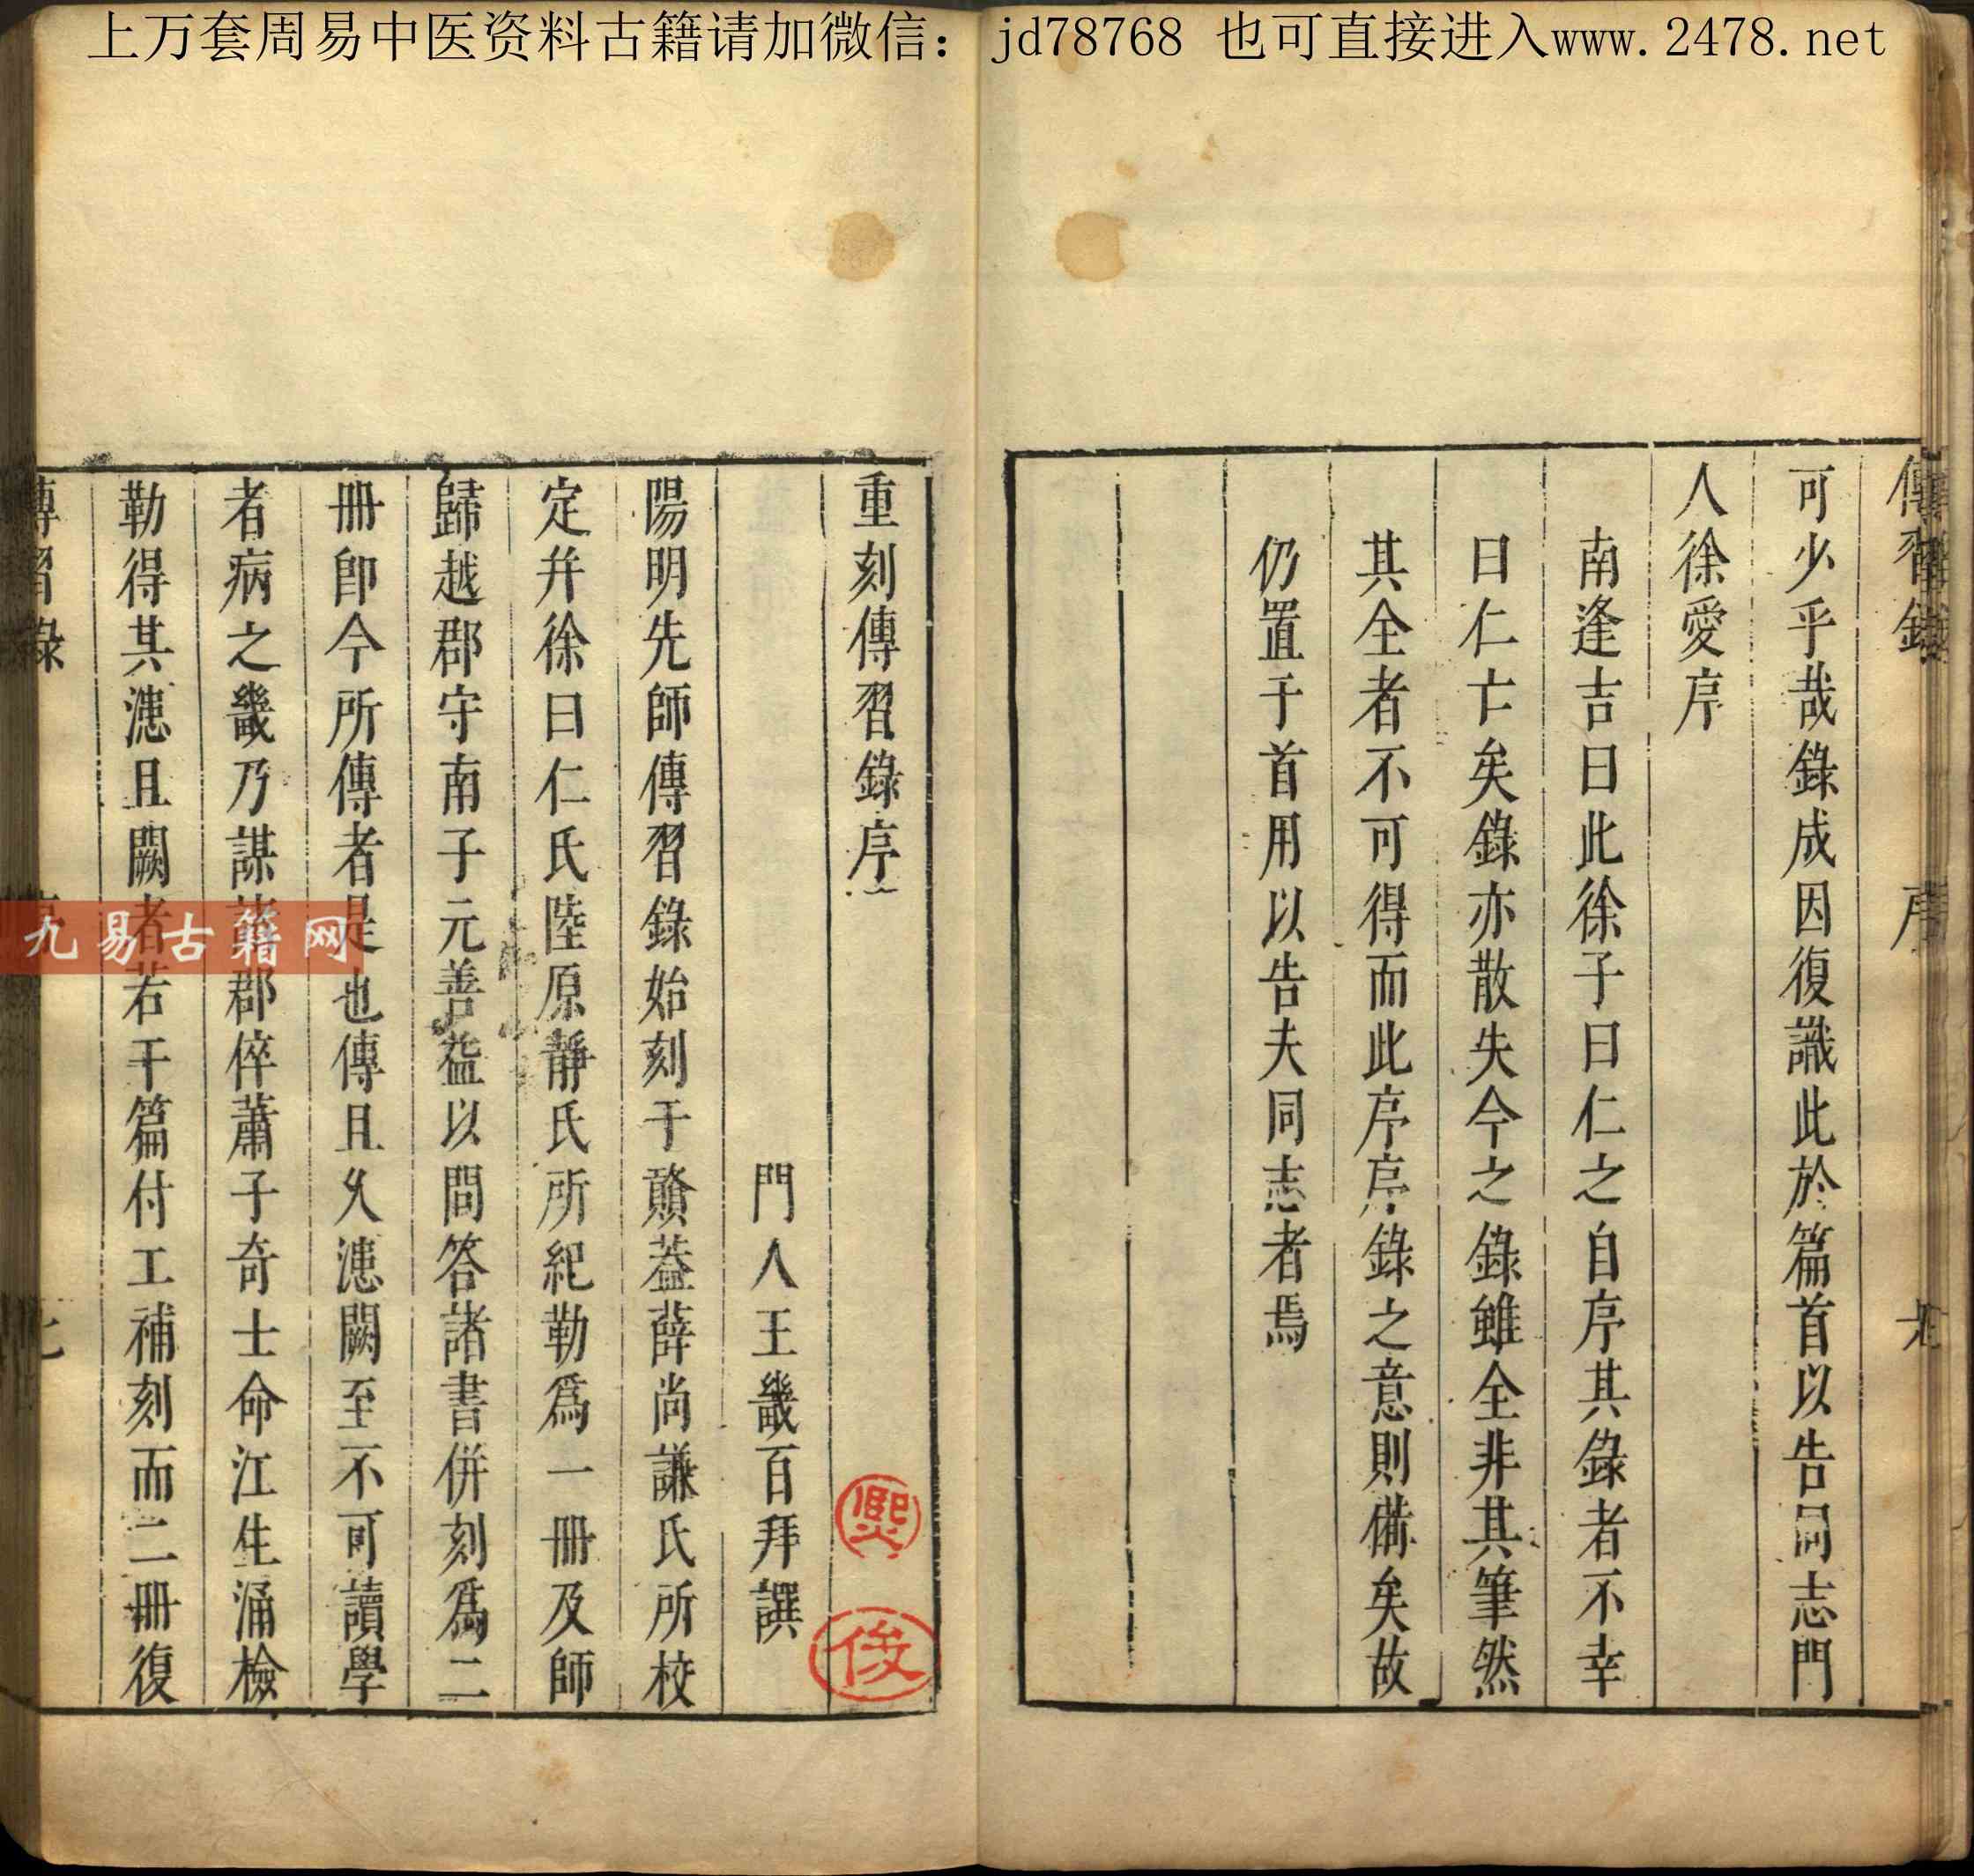 上万套周易中医资料古籍请加微信: jd78768 也可直接进入www.2478.net
傳習錄 序
可少乎哉錄成因復識此於篇首以告同志門
人徐愛序
南逢吉曰此徐子曰仁之自序其錄者不幸
曰仁亡矣錄亦散失今之錄雖全非其筆然
其全者不可得而此序序錄之意則備矣故
仍置于首用以告夫同志者焉
重刻傳習錄序
門人王畿百拜譔
陽明先師傳習錄始刻于贛葢薛尚謙氏所校
定幷徐曰仁氏陸原靜氏所紀勒爲一冊及師
歸越郡守南子元善益以問答諸書併刻爲二
冊卽今所傳者是也傳且久漶闕至不可讀學
者病之畿乃謀諸郡倅蕭子奇士命江生涌檢
勒得其漶且闕者若干篇付工補刻而二冊復
傳習錄 序 七
熙
俊
九易古籍网